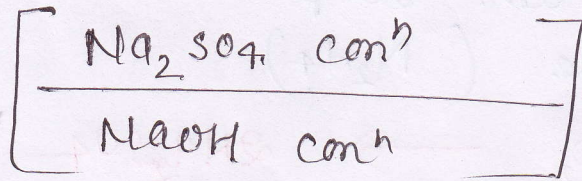 Na₂SO₄ conⁿ
NaOH conⁿ